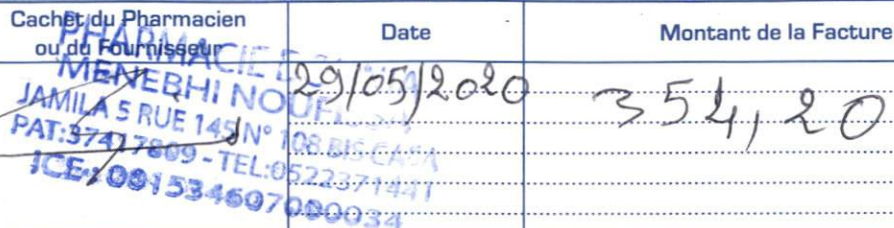 Cachet du Pharmacien
ou du Fournisseur
Date
Montant de la Facture
PHARMACIE
MENEBHI
JAMILA 5 RUE 145 N° 108 BIS CASA
PAT:37417809 - TEL:0522371441
ICE:001534607000034
29/05/2020
354,20